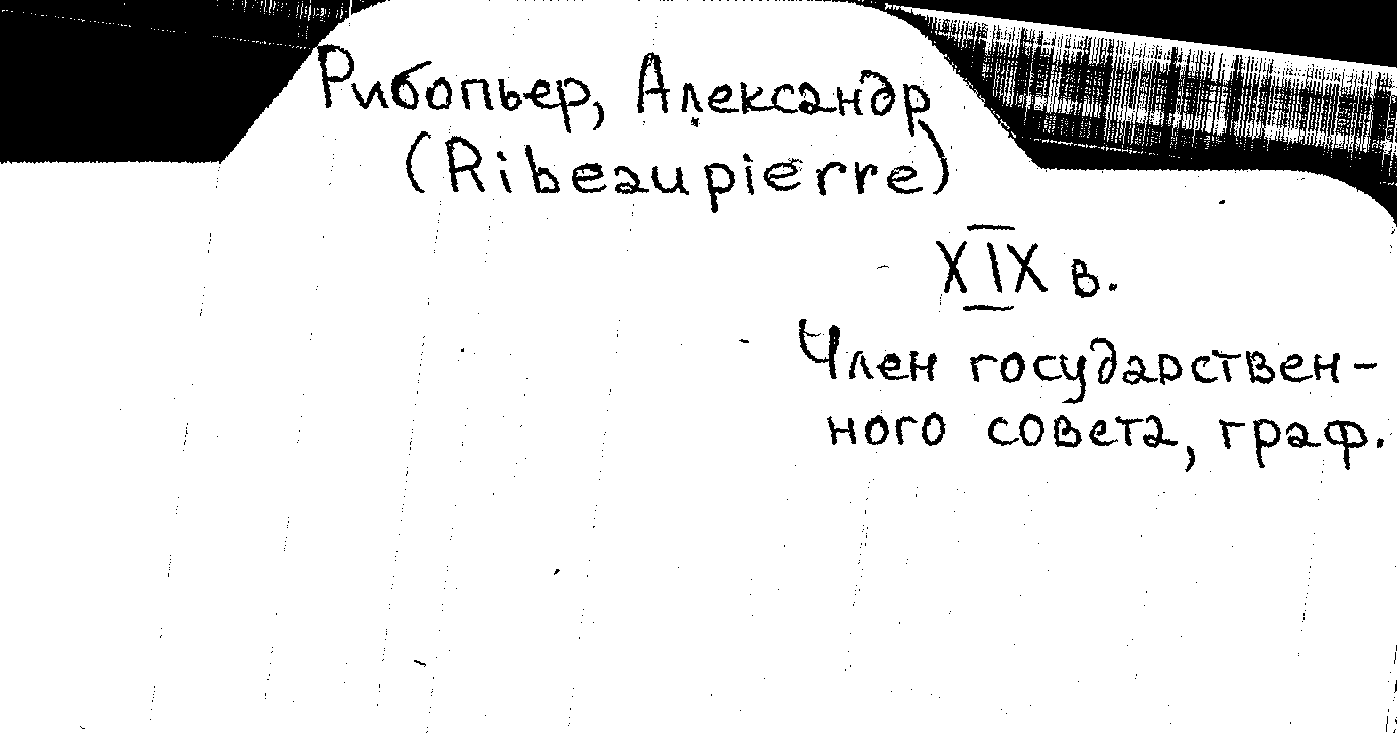 Рибопьер, Александр
(Ribeaupierre)
XIX в.
Член государствен-
ного совета, граф.